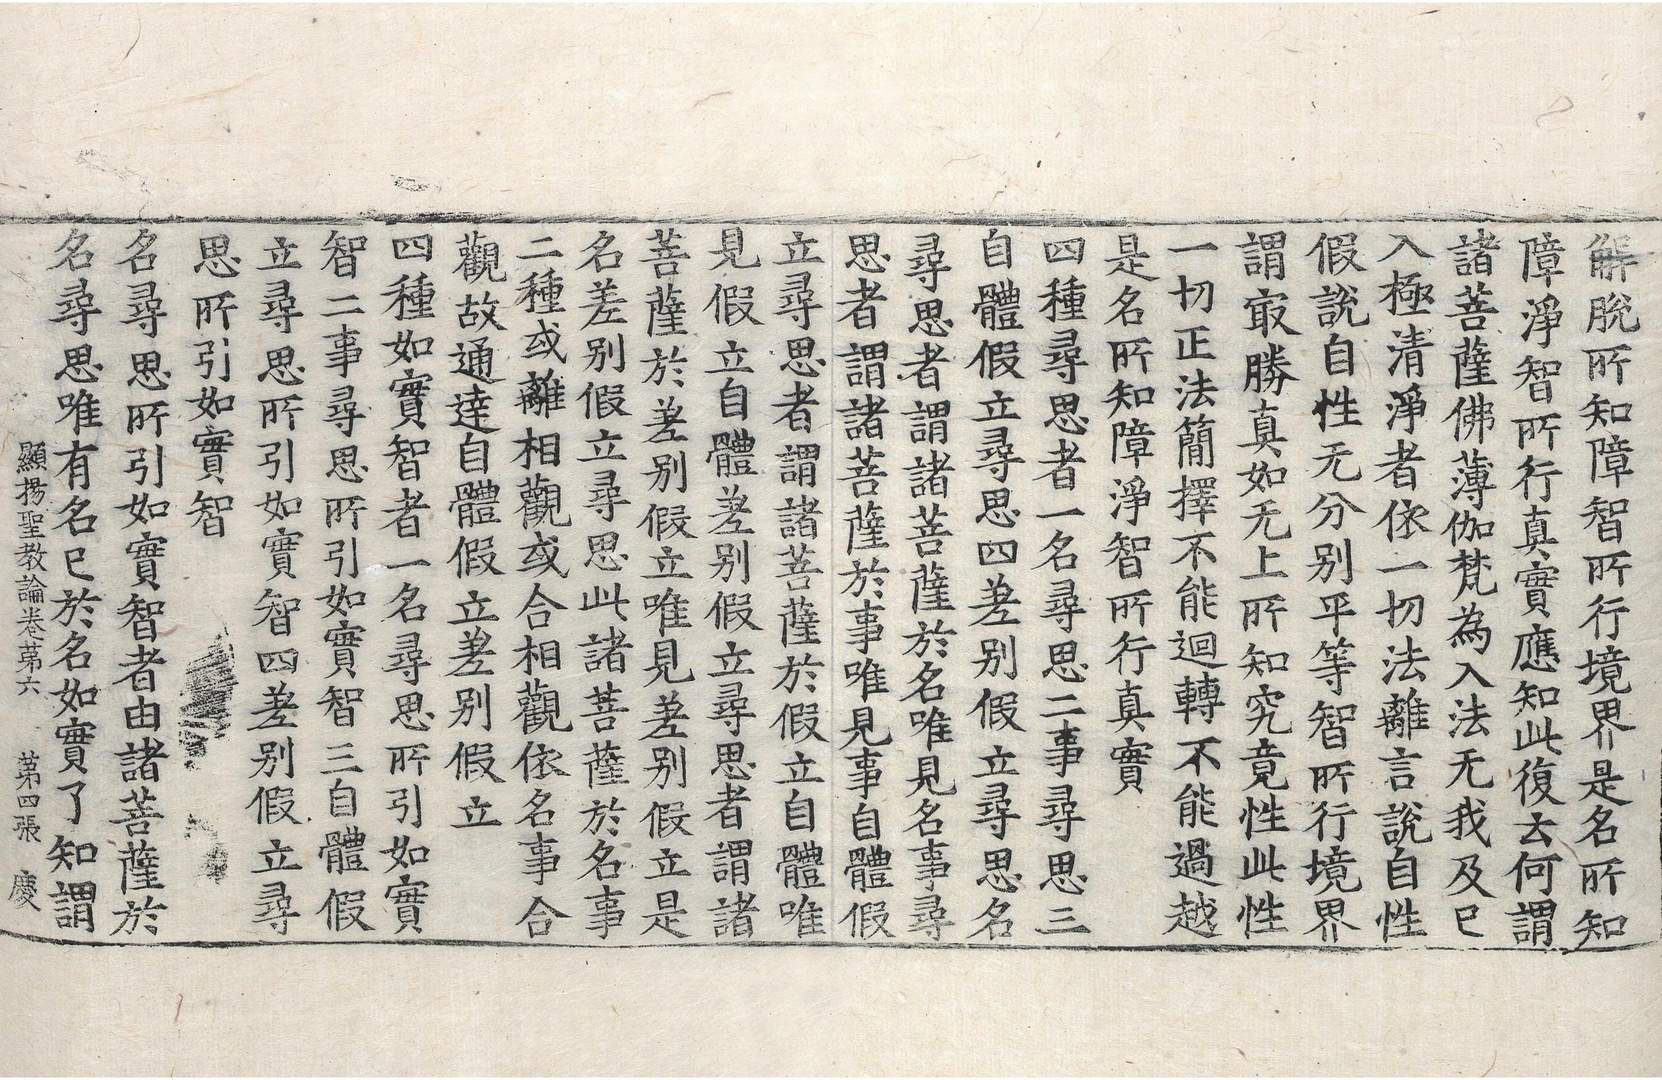 解脫所知障智所行境界是名所知
障淨智所行真實應知此復云何謂
諸菩薩佛薄伽梵為入法无我及已
入極清淨者依一切法離言說自性
假說自性无分別平等智所行境界
謂㝡勝真如无上所知究竟性此性
一切正法簡擇不能迴轉不能過越
是名所知障淨智所行真實
四種尋思者一名尋思二事尋思三
自體假立尋思四差別假立尋思名
尋思者謂諸菩薩於名唯見名事尋
思者謂諸菩薩於事唯見事自體假
立尋思者謂諸菩薩於假立自體唯
見假立自體差別假立尋思者謂諸
菩薩於差別假立唯見差別假立是
名差別假立尋思此諸菩薩於名事
二種或離相觀或合相觀依名事合
觀故通達自體假立差別假立
四種如實智者一名尋思所引如實
智二事尋思所引如實智三自體假
立尋思所引如實智四差別假立尋
思所引如實智
名尋思所引如實智者由諸菩薩於
名尋思唯有名已於名如實了知謂
顯揚聖教論卷第六 第四張 慶